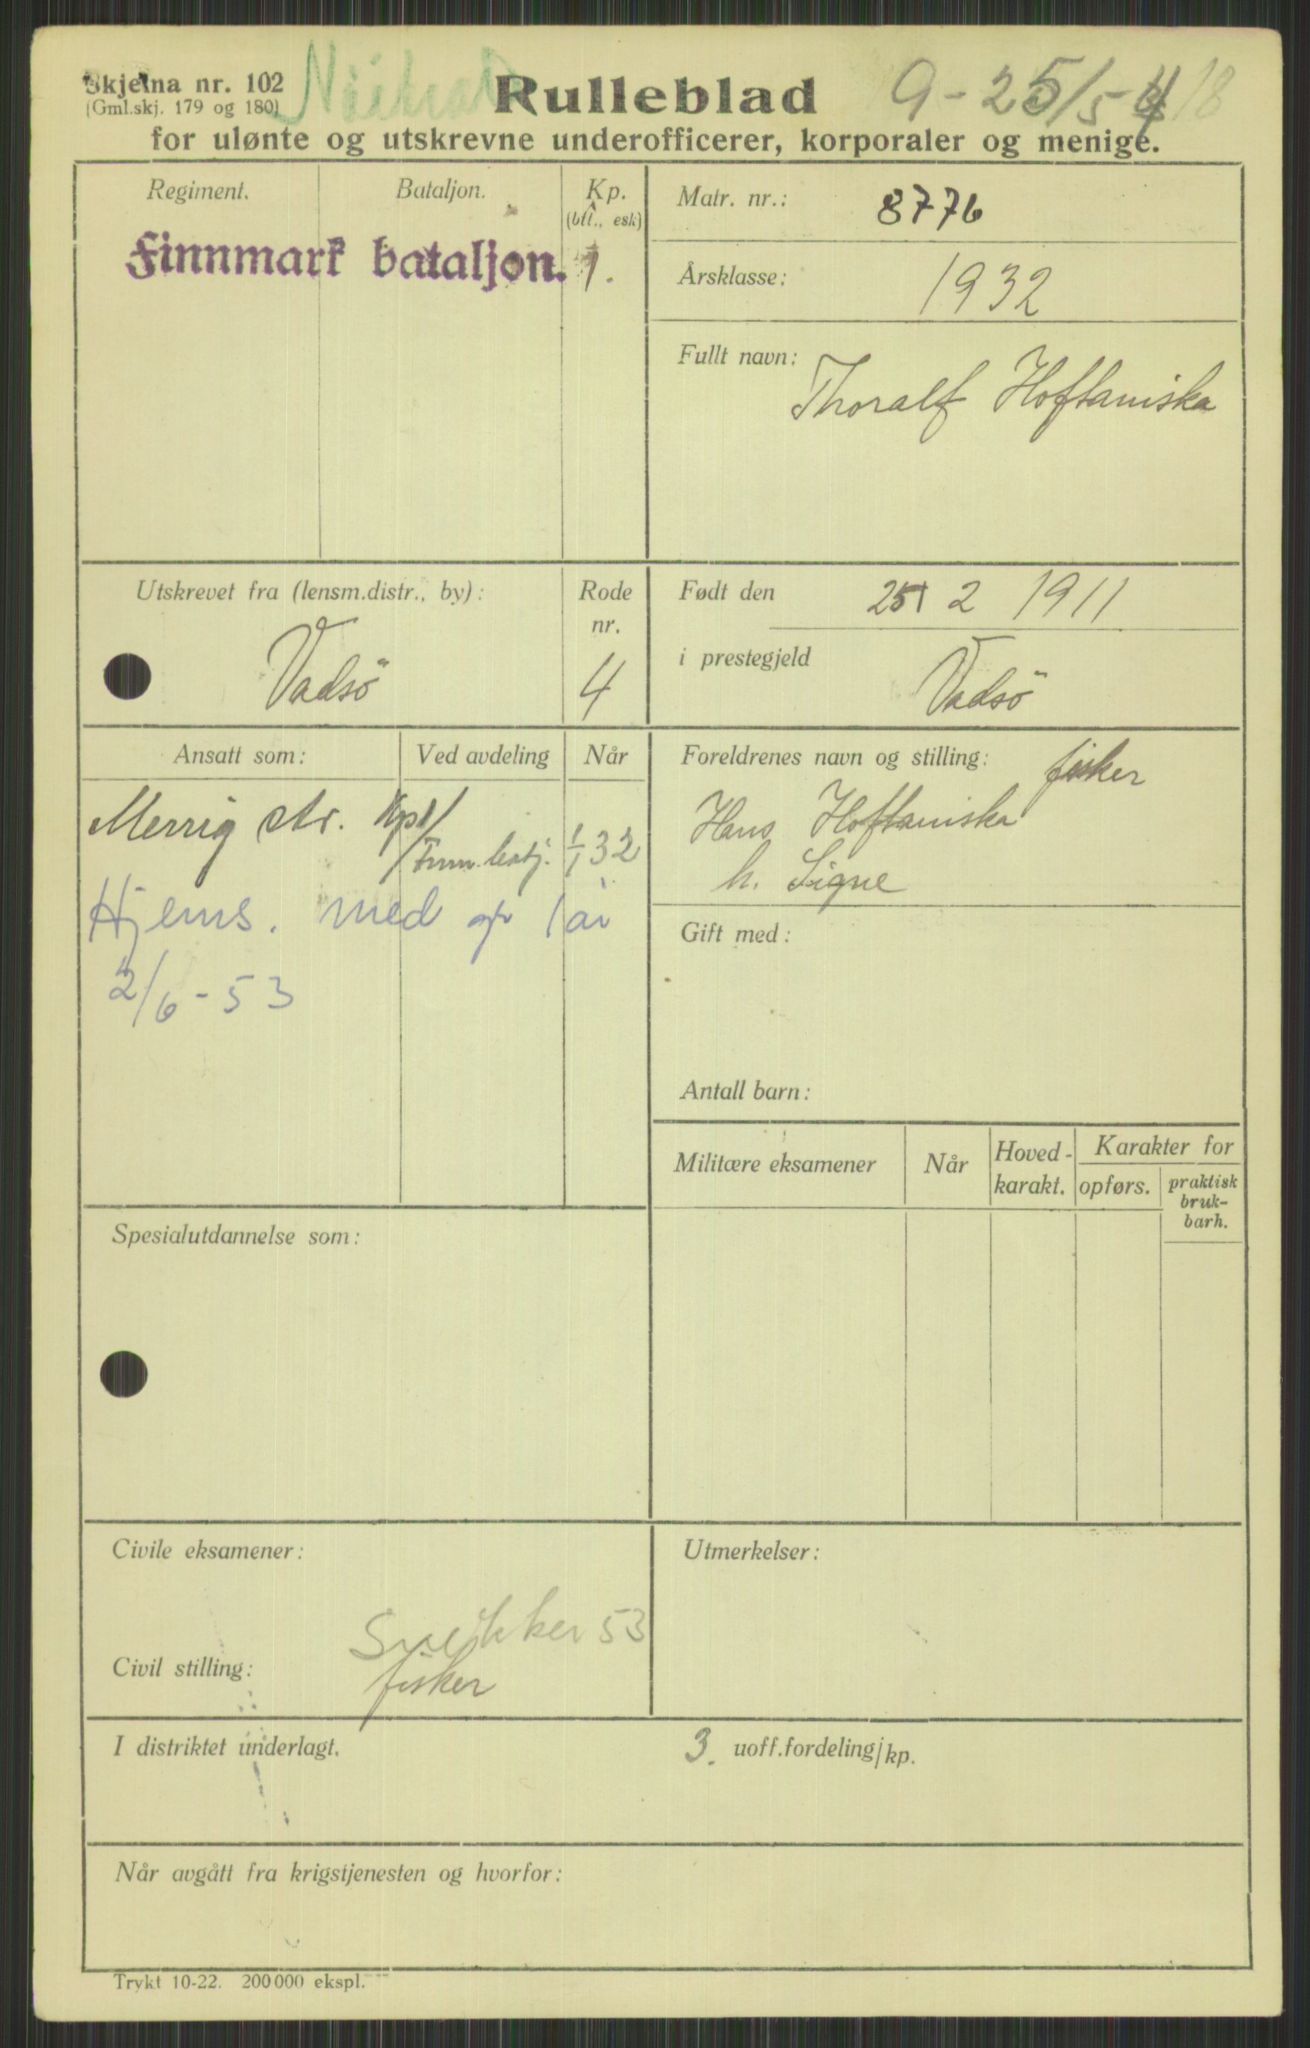 Skjema nr. 102
(Gml.skj. 179 og 180)
Rulleblad
9-25/5-4 18
for ulønte og utskrevne underofficerer, korporaler og menige.
Regiment. Bataljon. Kp.
(btl., esk)
Finnmark bataljon. 1.
Matr. nr.: 8776
Årsklasse: 1932
Fullt navn:
Thoralf Hoftaniska
Utskrevet fra (lensm.distr., by):
Vadsö
Rode
nr.
4
Født den 25 2 1911
i prestegjeld
Vadsö
Ansatt som: Ved avdeling Når
Menig str. Kp 1/
Finn.batj. 1/1 32
Hjems. med op 1 år
2/6-53
Foreldrenes navn og stilling: fisker
Hans Hoftaniska
h. Signe
Gift med:
Antall barn:
Militære eksamener Når Hoved-
karakt. Karakter for
opførs. praktisk
bruk-
barh.
Spesialutdannelse som:
Civile eksamener:
Snekker 53
Civil stilling: fisker
Utmerkelser:
I distriktet underlagt. 3. uoff.fordeling/kp.
Når avgått fra krigstjenesten og hvorfor:
Trykt 10-22. 200 000 ekspl.